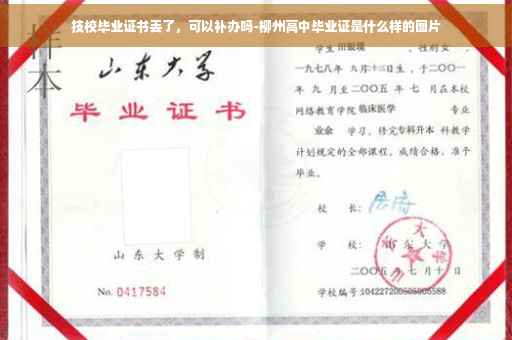 技校毕业证书丢了，可以补办吗-柳州高中毕业证是什么样的图片
样本
山东大学
毕业证书
山东大学制
No. 0417584
学生田银環，性别女，
一九七八年九月十三日生，于二〇〇一
年九月至二〇〇五年七月在本校
网络教育学院临床医学专业
业余学习，修完专科升本科教学
计划规定的全部课程，成绩合格，准予
毕业。
校长：
学校：山东大学
二〇〇五年七月十日
学校编号：104227200505005588